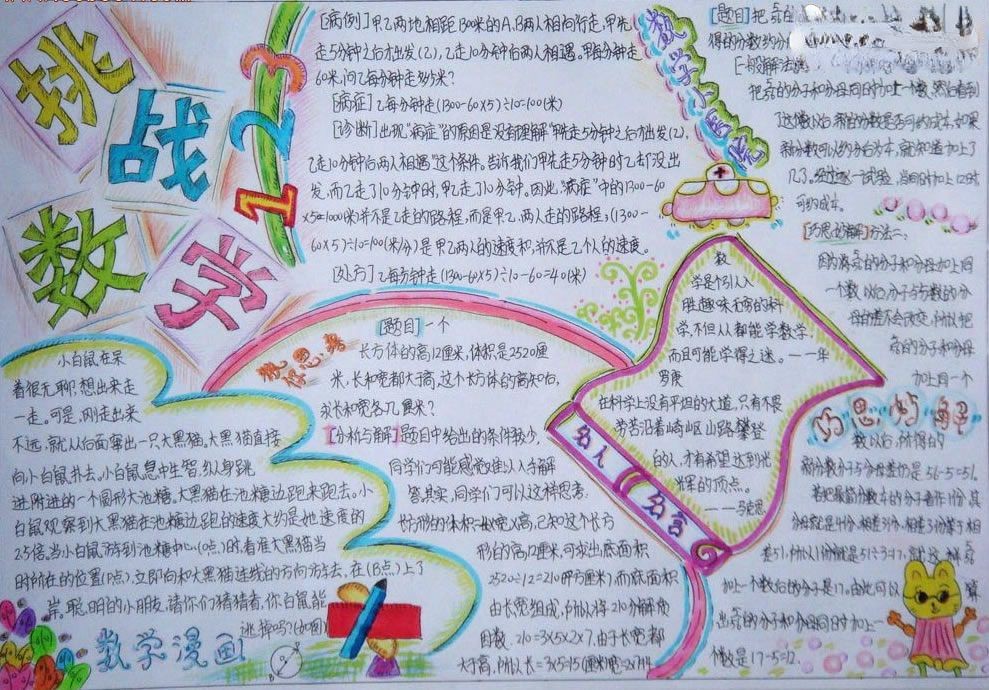 挑战数学
123
[病例]甲乙两地相距1300米的A、B两人相向行走,甲先
走5分钟之后才出发(乙),乙走10分钟后两人相遇。甲每分钟走
60米,问乙每分钟走多少米?
[病症]乙每分钟走(1300-60×5)÷10=100(米)
[诊断]出现"病症"的原因是没有理解"甲先走5分钟之后才出发(乙),
乙走10分钟后两人相遇"这个条件。当我们甲先走5分钟时乙去了没出
发,而乙走了10分钟时,甲乙走了10分钟。因此,"病症"中的1300-60
×5=1000(米)并不是乙走的路程,而是甲乙两人走的路程,(1300-
60×5)÷10=100(米/分)是甲乙两人的速度和,并不是乙个人的速度。
[处方]乙每分钟走(1300-60×5)÷10-60=40(米)
数学小医院
[题目]把
得的分数约分
[一般解法
把 的分子和分母同时加上一个数,然后看到
了这个数以后,新的分数是否可约成 ,如果
新分数可以约分后为 ,就知道加上了
几了。经过逐一试验,当同时加上12时,
可约成 。
[巧思妙解]方法一:
因为将 的分子和分母加上同
一个数以后,分子与分数的分
母的差不会改变,所以把
的分子和分母
加上同一个
巧思妙解
数以后,所得的
新分数分子与分母差仍是56-5=51。
若把最简分数 的分子看作1份,其
分母就是4份,相差3份,相差3份等于相
差51,所以1份就是51÷3=17,就这样
加上一个数后的分子是17。由此可以算
出 的分子和分母同时加上一
个数是17-5=12。
数
学是个引人入
胜,趣味无穷的科
学,不但人都能学数学,
而且可能学得之迷。——年
罗庚
在科学上没有平坦的大道,只有不畏
劳苦沿着崎岖山路攀登
的人,才有希望达到光
辉的顶点。
——马克思
名人名言
教你思考
[题目]一个
长方体的高12厘米,体积是2520厘
米,长和宽都大于高,这个长方体的高知旧,
求长和宽各几厘米?
[分析与解]题目中给出的条件较少,
同学们可能感觉难以入手解
答,其实,同学们可以这样思考.
长方形的体积=长×宽×高,已知这个长方
形的高12厘米,可求出底面积
2520÷12=210(平方厘米),而底面积
由长宽组成,所以将210分解质
因数.210=3×5×2×7,由于长宽都
大于高,所以长=3×5=15(厘米)宽=2×7=14
小白鼠在呆
着很无聊,想出来走
一走。可是,刚走出来
不远,就从后面窜出一只大黑猫,大黑猫直接
向小白鼠扑去,小白鼠急中生智,纵身跳
进附进的一个圆形大池塘,大黑猫在池塘边跑来跑去。小
白鼠观察到大黑猫在池塘边跑的速度大约是她速度的
2.5倍。当小白鼠游到池塘中心(O点)时,看准大黑猫当
时所在的位置(P点),立即向和大黑猫连线的方向方去,在(B点)上了
岸。聪明的小朋友,请你们猜猜看,你白鼠能
逃掉吗?(如图)
数学漫画